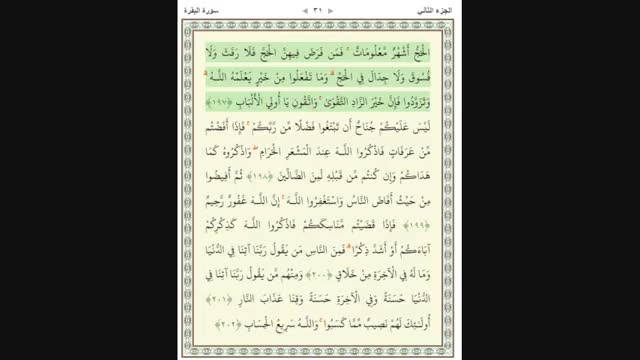 الجزء الثاني ٣١ سورة البقرة
الْحَجُّ أَشْهُرٌ مَّعْلُومَاتٌ ۚ فَمَن فَرَضَ فِيهِنَّ الْحَجَّ فَلَا رَفَثَ وَلَا
فُسُوقَ وَلَا جِدَالَ فِي الْحَجِّ ۗ وَمَا تَفْعَلُوا مِنْ خَيْرٍ يَعْلَمْهُ اللَّهُ ۗ
وَتَزَوَّدُوا فَإِنَّ خَيْرَ الزَّادِ التَّقْوَىٰ ۚ وَاتَّقُونِ يَا أُولِي الْأَلْبَابِ ﴿١٩٧﴾
لَيْسَ عَلَيْكُمْ جُنَاحٌ أَن تَبْتَغُوا فَضْلًا مِّن رَّبِّكُمْ ۚ فَإِذَا أَفَضْتُم
مِّنْ عَرَفَاتٍ فَاذْكُرُوا اللَّهَ عِندَ الْمَشْعَرِ الْحَرَامِ ۖ وَاذْكُرُوهُ كَمَا
هَدَاكُمْ وَإِن كُنتُم مِّن قَبْلِهِ لَمِنَ الضَّالِّينَ ﴿١٩٨﴾ ثُمَّ أَفِيضُوا
مِنْ حَيْثُ أَفَاضَ النَّاسُ وَاسْتَغْفِرُوا اللَّهَ ۚ إِنَّ اللَّهَ غَفُورٌ رَّحِيمٌ
﴿١٩٩﴾ فَإِذَا قَضَيْتُم مَّنَاسِكَكُمْ فَاذْكُرُوا اللَّهَ كَذِكْرِكُمْ
آبَاءَكُمْ أَوْ أَشَدَّ ذِكْرًا ۗ فَمِنَ النَّاسِ مَن يَقُولُ رَبَّنَا آتِنَا فِي الدُّنْيَا
وَمَا لَهُ فِي الْآخِرَةِ مِنْ خَلَاقٍ ﴿٢٠٠﴾ وَمِنْهُم مَّن يَقُولُ رَبَّنَا آتِنَا فِي
الدُّنْيَا حَسَنَةً وَفِي الْآخِرَةِ حَسَنَةً وَقِنَا عَذَابَ النَّارِ ﴿٢٠١﴾
أُولَٰئِكَ لَهُمْ نَصِيبٌ مِّمَّا كَسَبُوا ۚ وَاللَّهُ سَرِيعُ الْحِسَابِ ﴿٢٠٢﴾